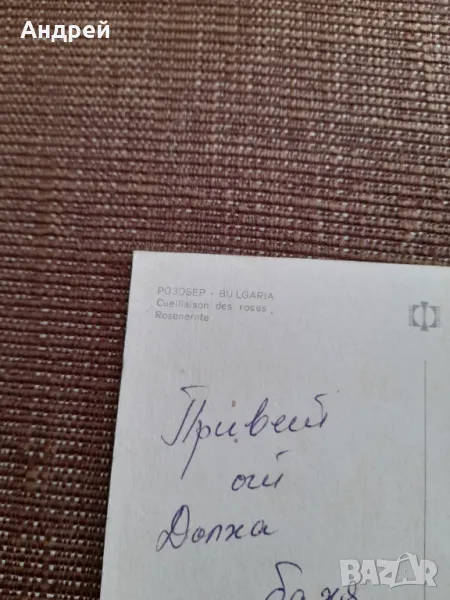 Андрей
РОЗОБЕР - BULGARIA
Cueillaison des roses
Rosenernte
Привет
от
Долна
баня
BAZAR
bg